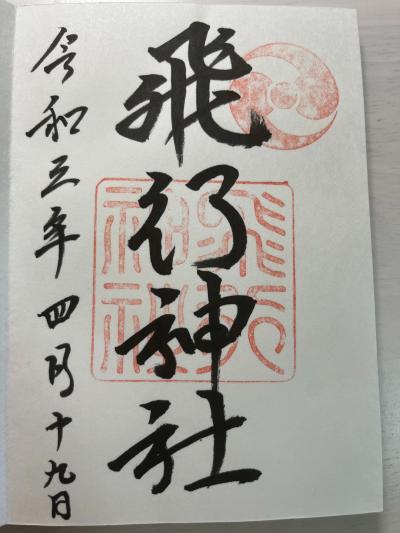 飛行神社
飛行
神社
令和三年四月十九日